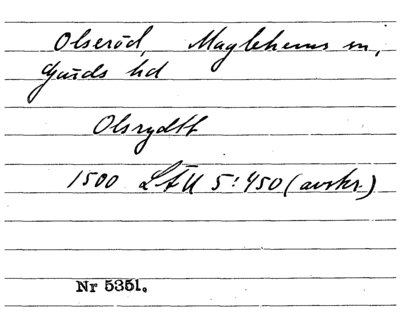 Olseröd, Maglehems sn,
Gärds hd
Olsrydtt
1500 LÄU 5:450 (avskr.)
Nr 5351.